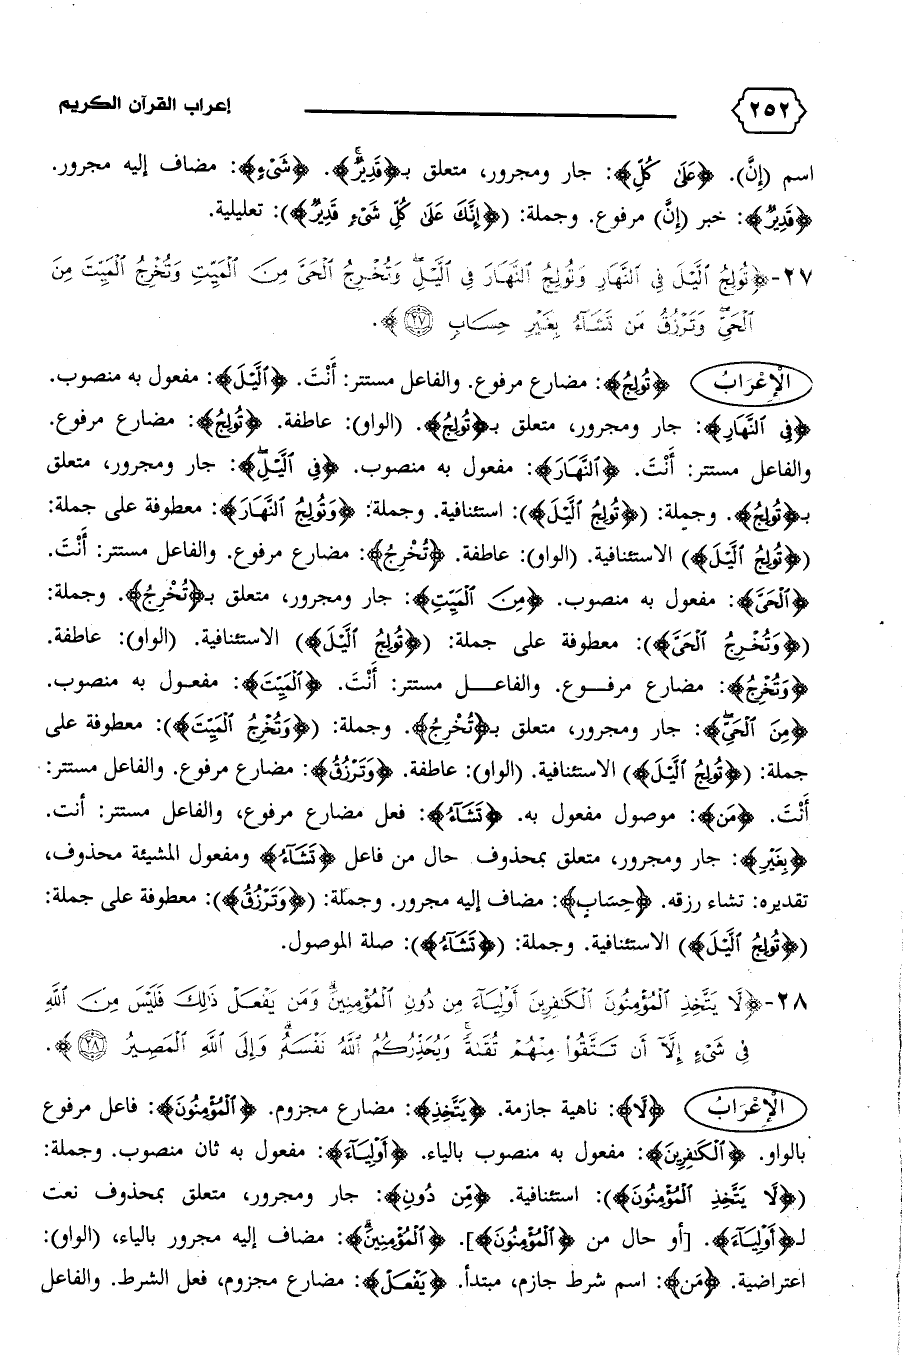 ٢٥٢ إعراب القرآن الكريم
اسم (إنَّ). ﴿عَلَىٰ كُلِّ﴾: جار ومجرور، متعلق بـ﴿قَدِيرٌ﴾. ﴿شَىْءٍ﴾: مضاف إليه مجرور.
﴿قَدِيرٌ﴾: خبر (إنَّ) مرفوع. وجملة: (﴿إِنَّكَ عَلَىٰ كُلِّ شَىْءٍ قَدِيرٌ﴾): تعليلية.
٢٧-﴿تُولِجُ ٱلَّيْلَ فِى ٱلنَّهَارِ وَتُولِجُ ٱلنَّهَارَ فِى ٱلَّيْلِۖ وَتُخْرِجُ ٱلْحَىَّ مِنَ ٱلْمَيِّتِ وَتُخْرِجُ ٱلْمَيِّتَ مِنَ
ٱلْحَىِّۖ وَتَرْزُقُ مَن تَشَآءُ بِغَيْرِ حِسَابٍ ۝٢٧﴾.
الْإِعْرَابُ ﴿تُولِجُ﴾: مضارع مرفوع. والفاعل مستتر: أَنْتَ. ﴿ٱلَّيْلَ﴾: مفعول به منصوب.
﴿فِى ٱلنَّهَارِ﴾: جار ومجرور، متعلق بـ﴿تُولِجُ﴾. (الواو): عاطفة. ﴿تُولِجُ﴾: مضارع مرفوع.
والفاعل مستتر: أَنْتَ. ﴿ٱلنَّهَارَ﴾: مفعول به منصوب. ﴿فِى ٱلَّيْلِۖ﴾: جار ومجرور، متعلق
بـ﴿تُولِجُ﴾. وجملة: (﴿تُولِجُ ٱلَّيْلَ﴾): استئنافية. وجملة: ﴿وَتُولِجُ ٱلنَّهَارَ﴾: معطوفة على جملة:
(﴿تُولِجُ ٱلَّيْلَ﴾) الاستئنافية. (الواو): عاطفة. ﴿تُخْرِجُ﴾: مضارع مرفوع. والفاعل مستتر: أَنْتَ.
﴿ٱلْحَىَّ﴾: مفعول به منصوب. ﴿مِنَ ٱلْمَيِّتِ﴾: جار ومجرور، متعلق بـ﴿تُخْرِجُ﴾. وجملة:
(﴿وَتُخْرِجُ ٱلْحَىَّ﴾): معطوفة على جملة: (﴿تُولِجُ ٱلَّيْلَ﴾) الاستئنافية. (الواو): عاطفة.
﴿وَتُخْرِجُ﴾: مضارع مرفوع. والفاعل مستتر: أَنْتَ. ﴿ٱلْمَيِّتَ﴾: مفعول به منصوب.
﴿مِنَ ٱلْحَىِّۖ﴾: جار ومجرور، متعلق بـ﴿تُخْرِجُ﴾. وجملة: (﴿وَتُخْرِجُ ٱلْمَيِّتَ﴾): معطوفة على
جملة: (﴿تُولِجُ ٱلَّيْلَ﴾) الاستئنافية. (الواو): عاطفة. ﴿وَتَرْزُقُ﴾: مضارع مرفوع. والفاعل مستتر:
أَنْتَ. ﴿مَن﴾: موصول مفعول به. ﴿تَشَآءُ﴾: فعل مضارع مرفوع، والفاعل مستتر: أنت.
﴿بِغَيْرِ﴾: جار ومجرور، متعلق بمحذوف حال من فاعل ﴿تَشَآءُ﴾ ومفعول المشيئة محذوف،
تقديره: تشاء رزقه. ﴿حِسَابٍ﴾: مضاف إليه مجرور. وجملة: (﴿وَتَرْزُقُ﴾): معطوفة على جملة:
(﴿تُولِجُ ٱلَّيْلَ﴾) الاستئنافية. وجملة: (﴿تَشَآءُ﴾): صلة الموصول.
٢٨-﴿لَّا يَتَّخِذِ ٱلْمُؤْمِنُونَ ٱلْكَٰفِرِينَ أَوْلِيَآءَ مِن دُونِ ٱلْمُؤْمِنِينَۖ وَمَن يَفْعَلْ ذَٰلِكَ فَلَيْسَ مِنَ ٱللَّهِ
فِى شَىْءٍ إِلَّآ أَن تَتَّقُوا۟ مِنْهُمْ تُقَىٰةًۗ وَيُحَذِّرُكُمُ ٱللَّهُ نَفْسَهُۥۗ وَإِلَى ٱللَّهِ ٱلْمَصِيرُ ۝٢٨﴾.
الْإِعْرَابُ ﴿لَّا﴾: ناهية جازمة. ﴿يَتَّخِذِ﴾: مضارع مجزوم. ﴿ٱلْمُؤْمِنُونَ﴾: فاعل مرفوع
بالواو. ﴿ٱلْكَٰفِرِينَ﴾: مفعول به منصوب بالياء. ﴿أَوْلِيَآءَ﴾: مفعول به ثان منصوب. وجملة:
(﴿لَّا يَتَّخِذِ ٱلْمُؤْمِنُونَ﴾): استئنافية. ﴿مِّن دُونِ﴾: جار ومجرور، متعلق بمحذوف نعت
لـ﴿أَوْلِيَآءَ﴾. [أو حال من ﴿ٱلْمُؤْمِنُونَ﴾]. ﴿ٱلْمُؤْمِنِينَۖ﴾: مضاف إليه مجرور بالياء، (الواو):
اعتراضية. ﴿مَن﴾: اسم شرط جازم، مبتدأ. ﴿يَفْعَلْ﴾: مضارع مجزوم، فعل الشرط. والفاعل